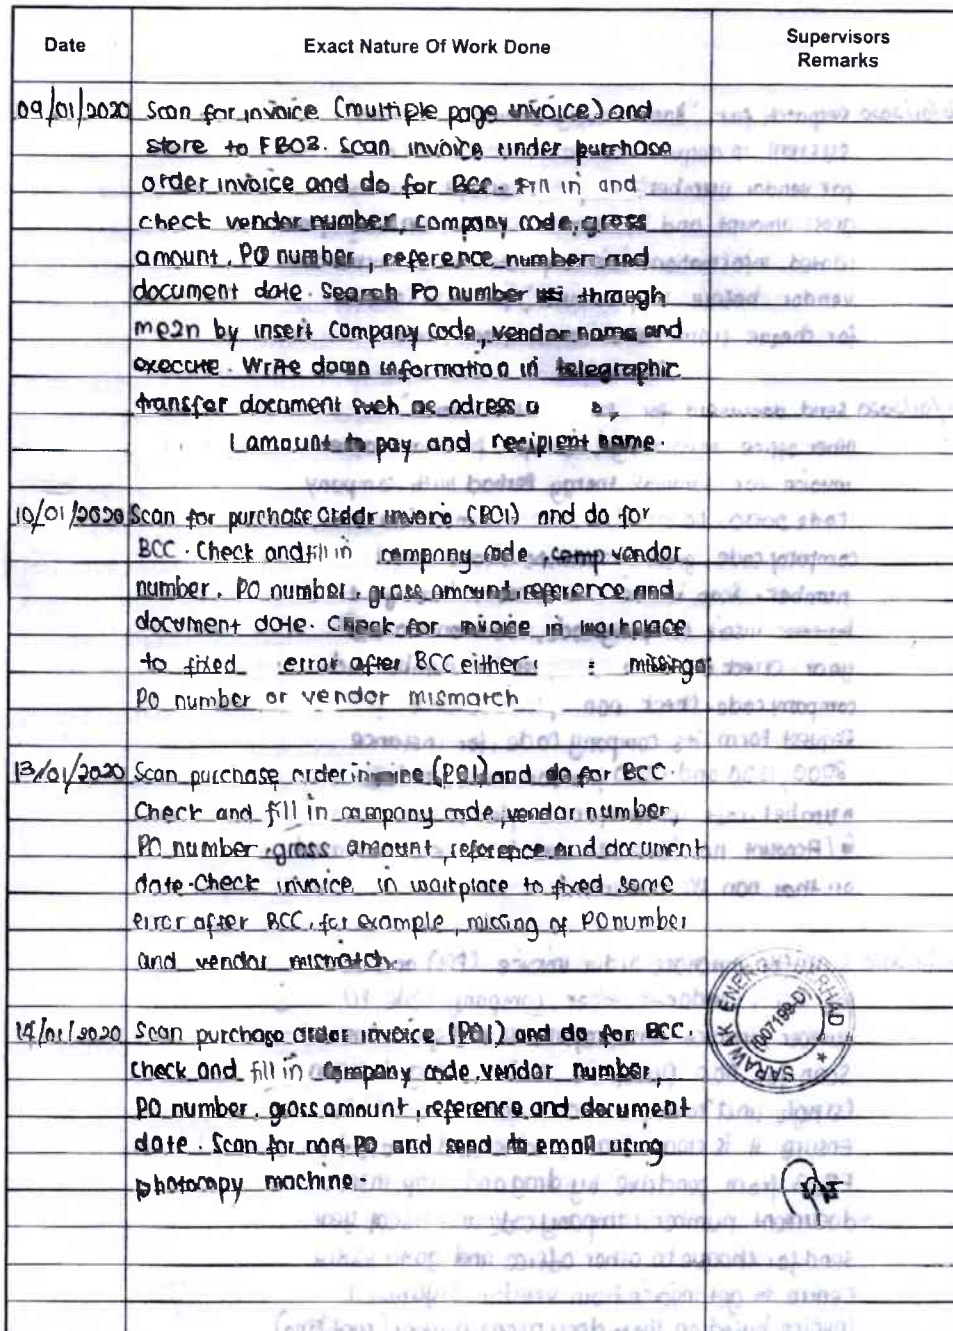 Date Exact Nature Of Work Done Supervisors Remarks
09/01/2020 Scan for invoice (multiple page invoice) and
store to FB03. Scan invoice under purchase
order invoice and do for BCC. Fill in and
check vendor number, company code, gross
amount, PO number, reference number and
document date. Search PO number through
me2n by insert company code, vendor name and
execute. Write down information in telegraphic
transfer document such as adress
amount to pay and recipient name.
10/01/2020 Scan for purchase order invoice (POI) and do for
BCC. Check and fill in company code, vendor
number, PO number, gross amount, reference and
document date. Check for invoice in workplace
to fixed error after BCC either missing
PO number or vendor mismatch
13/01/2020 Scan purchase order (POI) and do for BCC.
Check and fill in company code, vendor number
PO number, gross amount, reference and document
date. Check invoice in workplace to fixed some
error after BCC, for example, missing of PO number
and vendor mismatch
14/01/2020 Scan purchase order invoice (POI) and do for BCC.
Check and fill in company code, vendor number,
PO number, gross amount, reference and document
date. Scan for non PO and send to email using
photocopy machine.
SARAWAK ENERGY BERHAD
(007199-D)